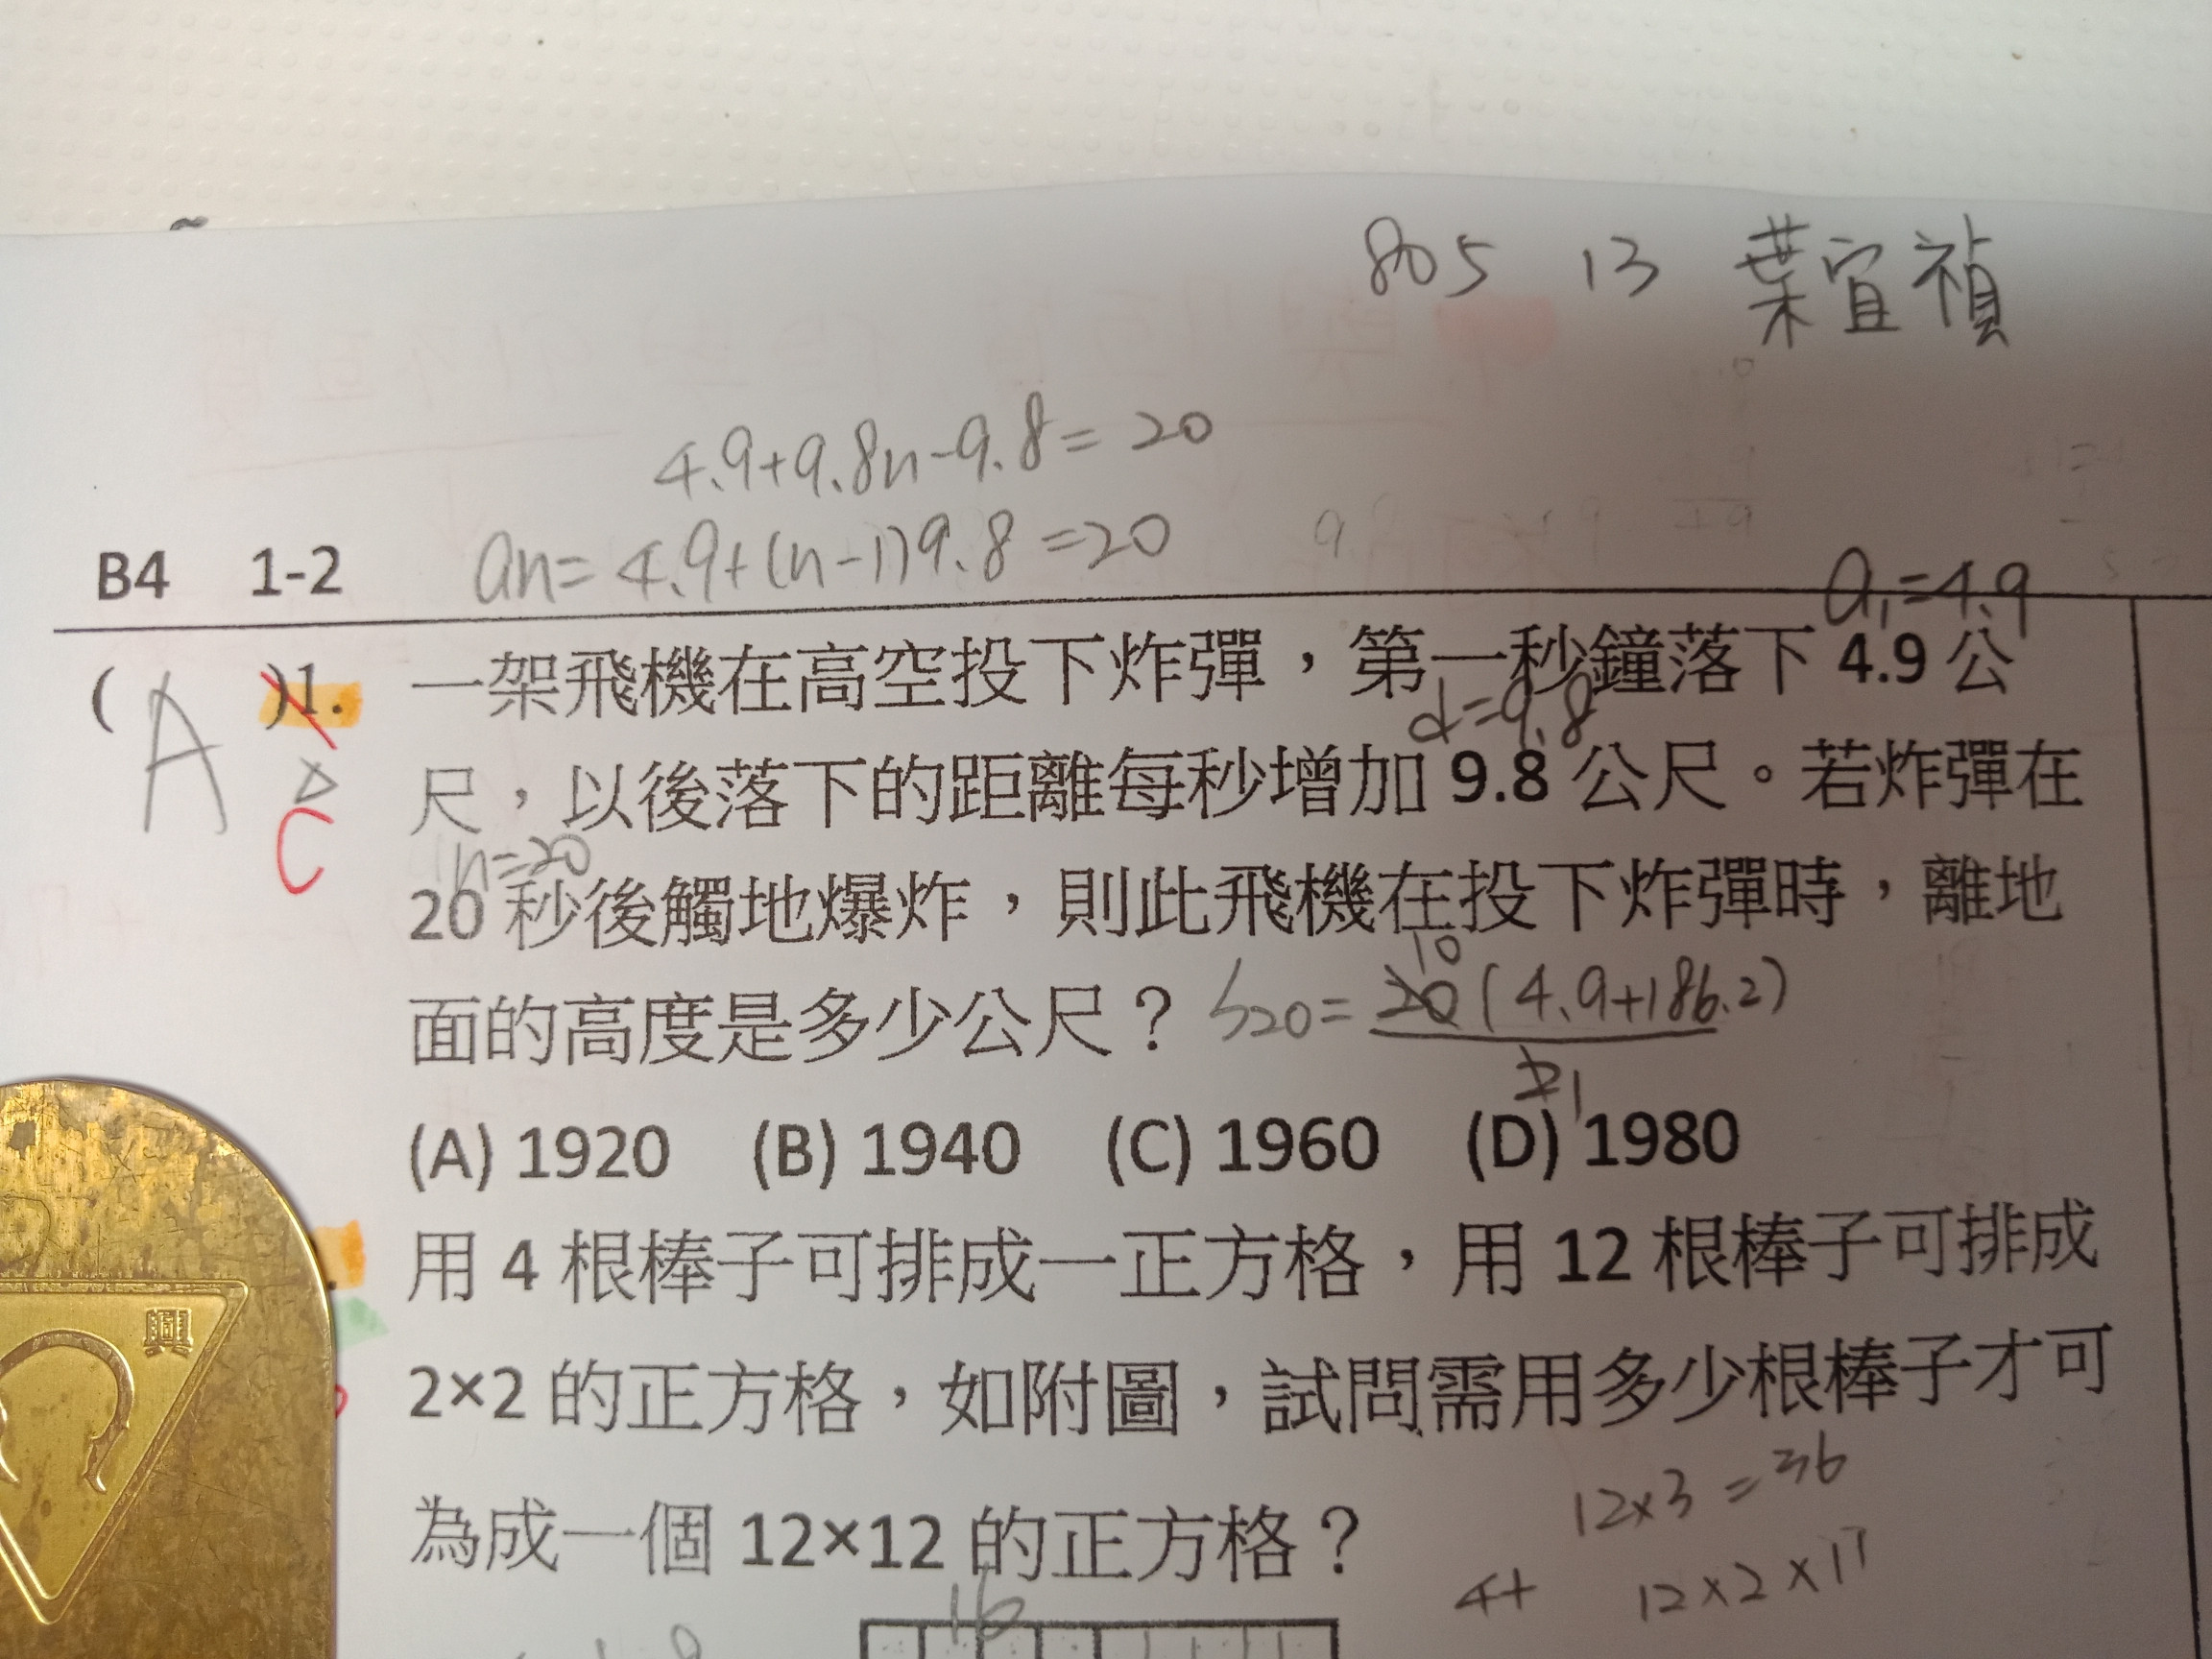 805 13 葉宜禎
4.9+9.8n-9.8=20
an=4.9+(n-1)9.8=20
B4 1-2
a₁=4.9
( A )1. 一架飛機在高空投下炸彈，第一秒鐘落下 4.9 公
d=9.8
尺，以後落下的距離每秒增加 9.8 公尺。若炸彈在
C
n=20
20 秒後觸地爆炸，則此飛機在投下炸彈時，離地
面的高度是多少公尺？ S20= 20 10 (4.9+186.2)
2 1
(A) 1920 (B) 1940 (C) 1960 (D) 1980
用 4 根棒子可排成一正方格，用 12 根棒子可排成
2×2 的正方格，如附圖，試問需用多少根棒子才可
12×3=36
為成一個 12×12 的正方格？
4+ 12×2×11
16
興